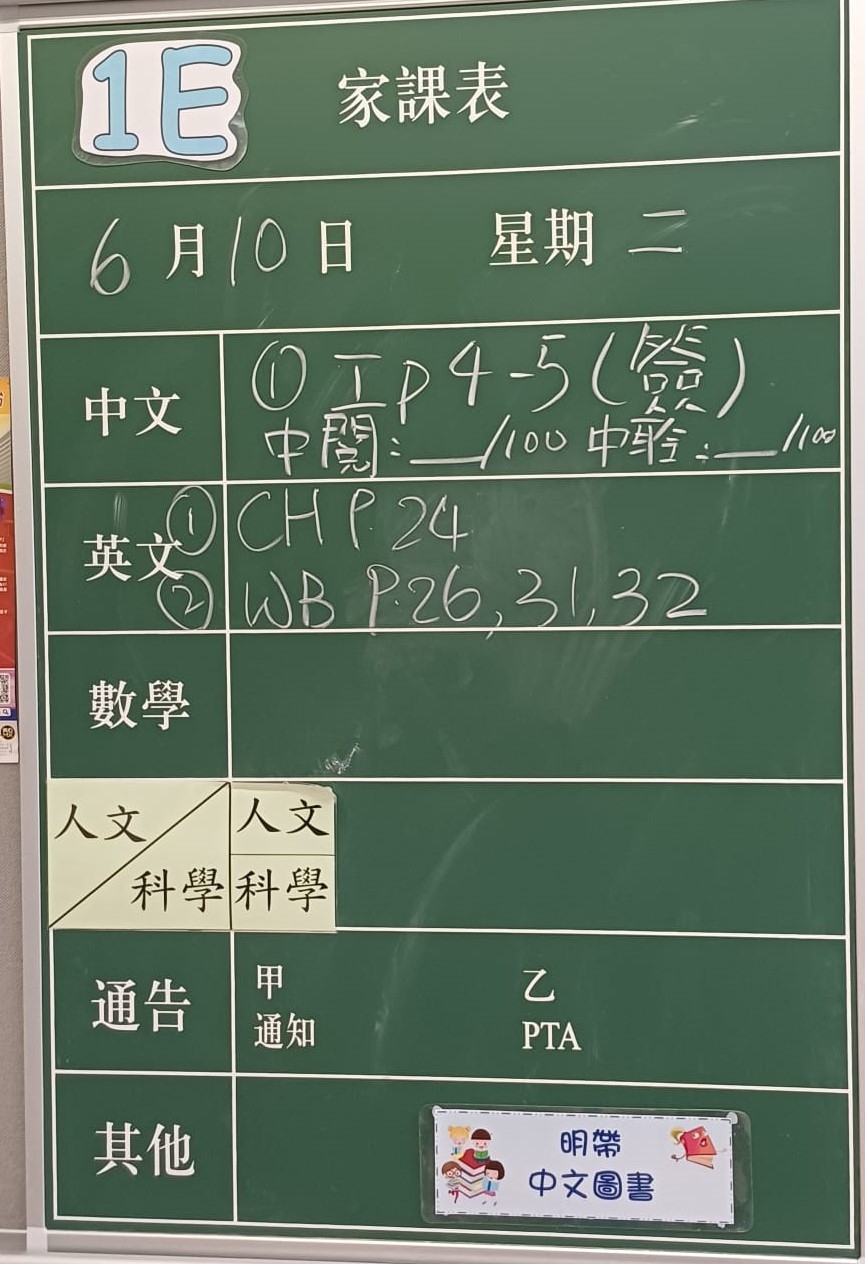 1E 家課表
6月10日 星期二
中文 ①工p4-5(簽)
中閱:__/100 中聆:__/100
英文 ①CH P.24
②WB P.26,31,32
數學
人文 人文
科學 科學
通告 甲 乙
通知 PTA
其他 明帶
中文圖書